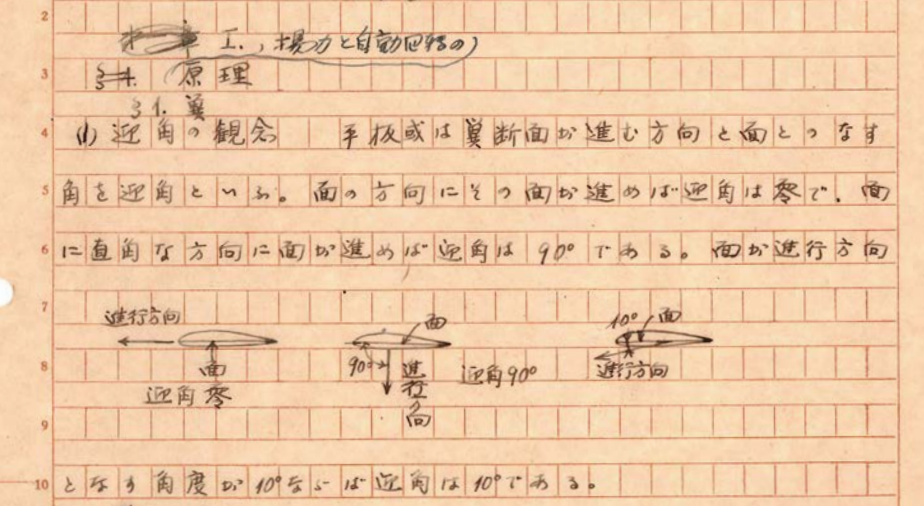 I.、揚力と自動回転の
§1. 原理
§1. 翼
(1) 迎角の観念 平板或は翼断面が進む方向と面とのなす
角を迎角といふ。面の方向にその面が進めば迎角は零で、面
に直角な方向に面が進めば迎角は90°である。面が進行方向
進行方向
面
迎角零
面
90°
進行方向
迎角90°
10°
面
進行方向
となす角度が10°ならば迎角は10°である。
2
3
4
5
6
7
8
9
10